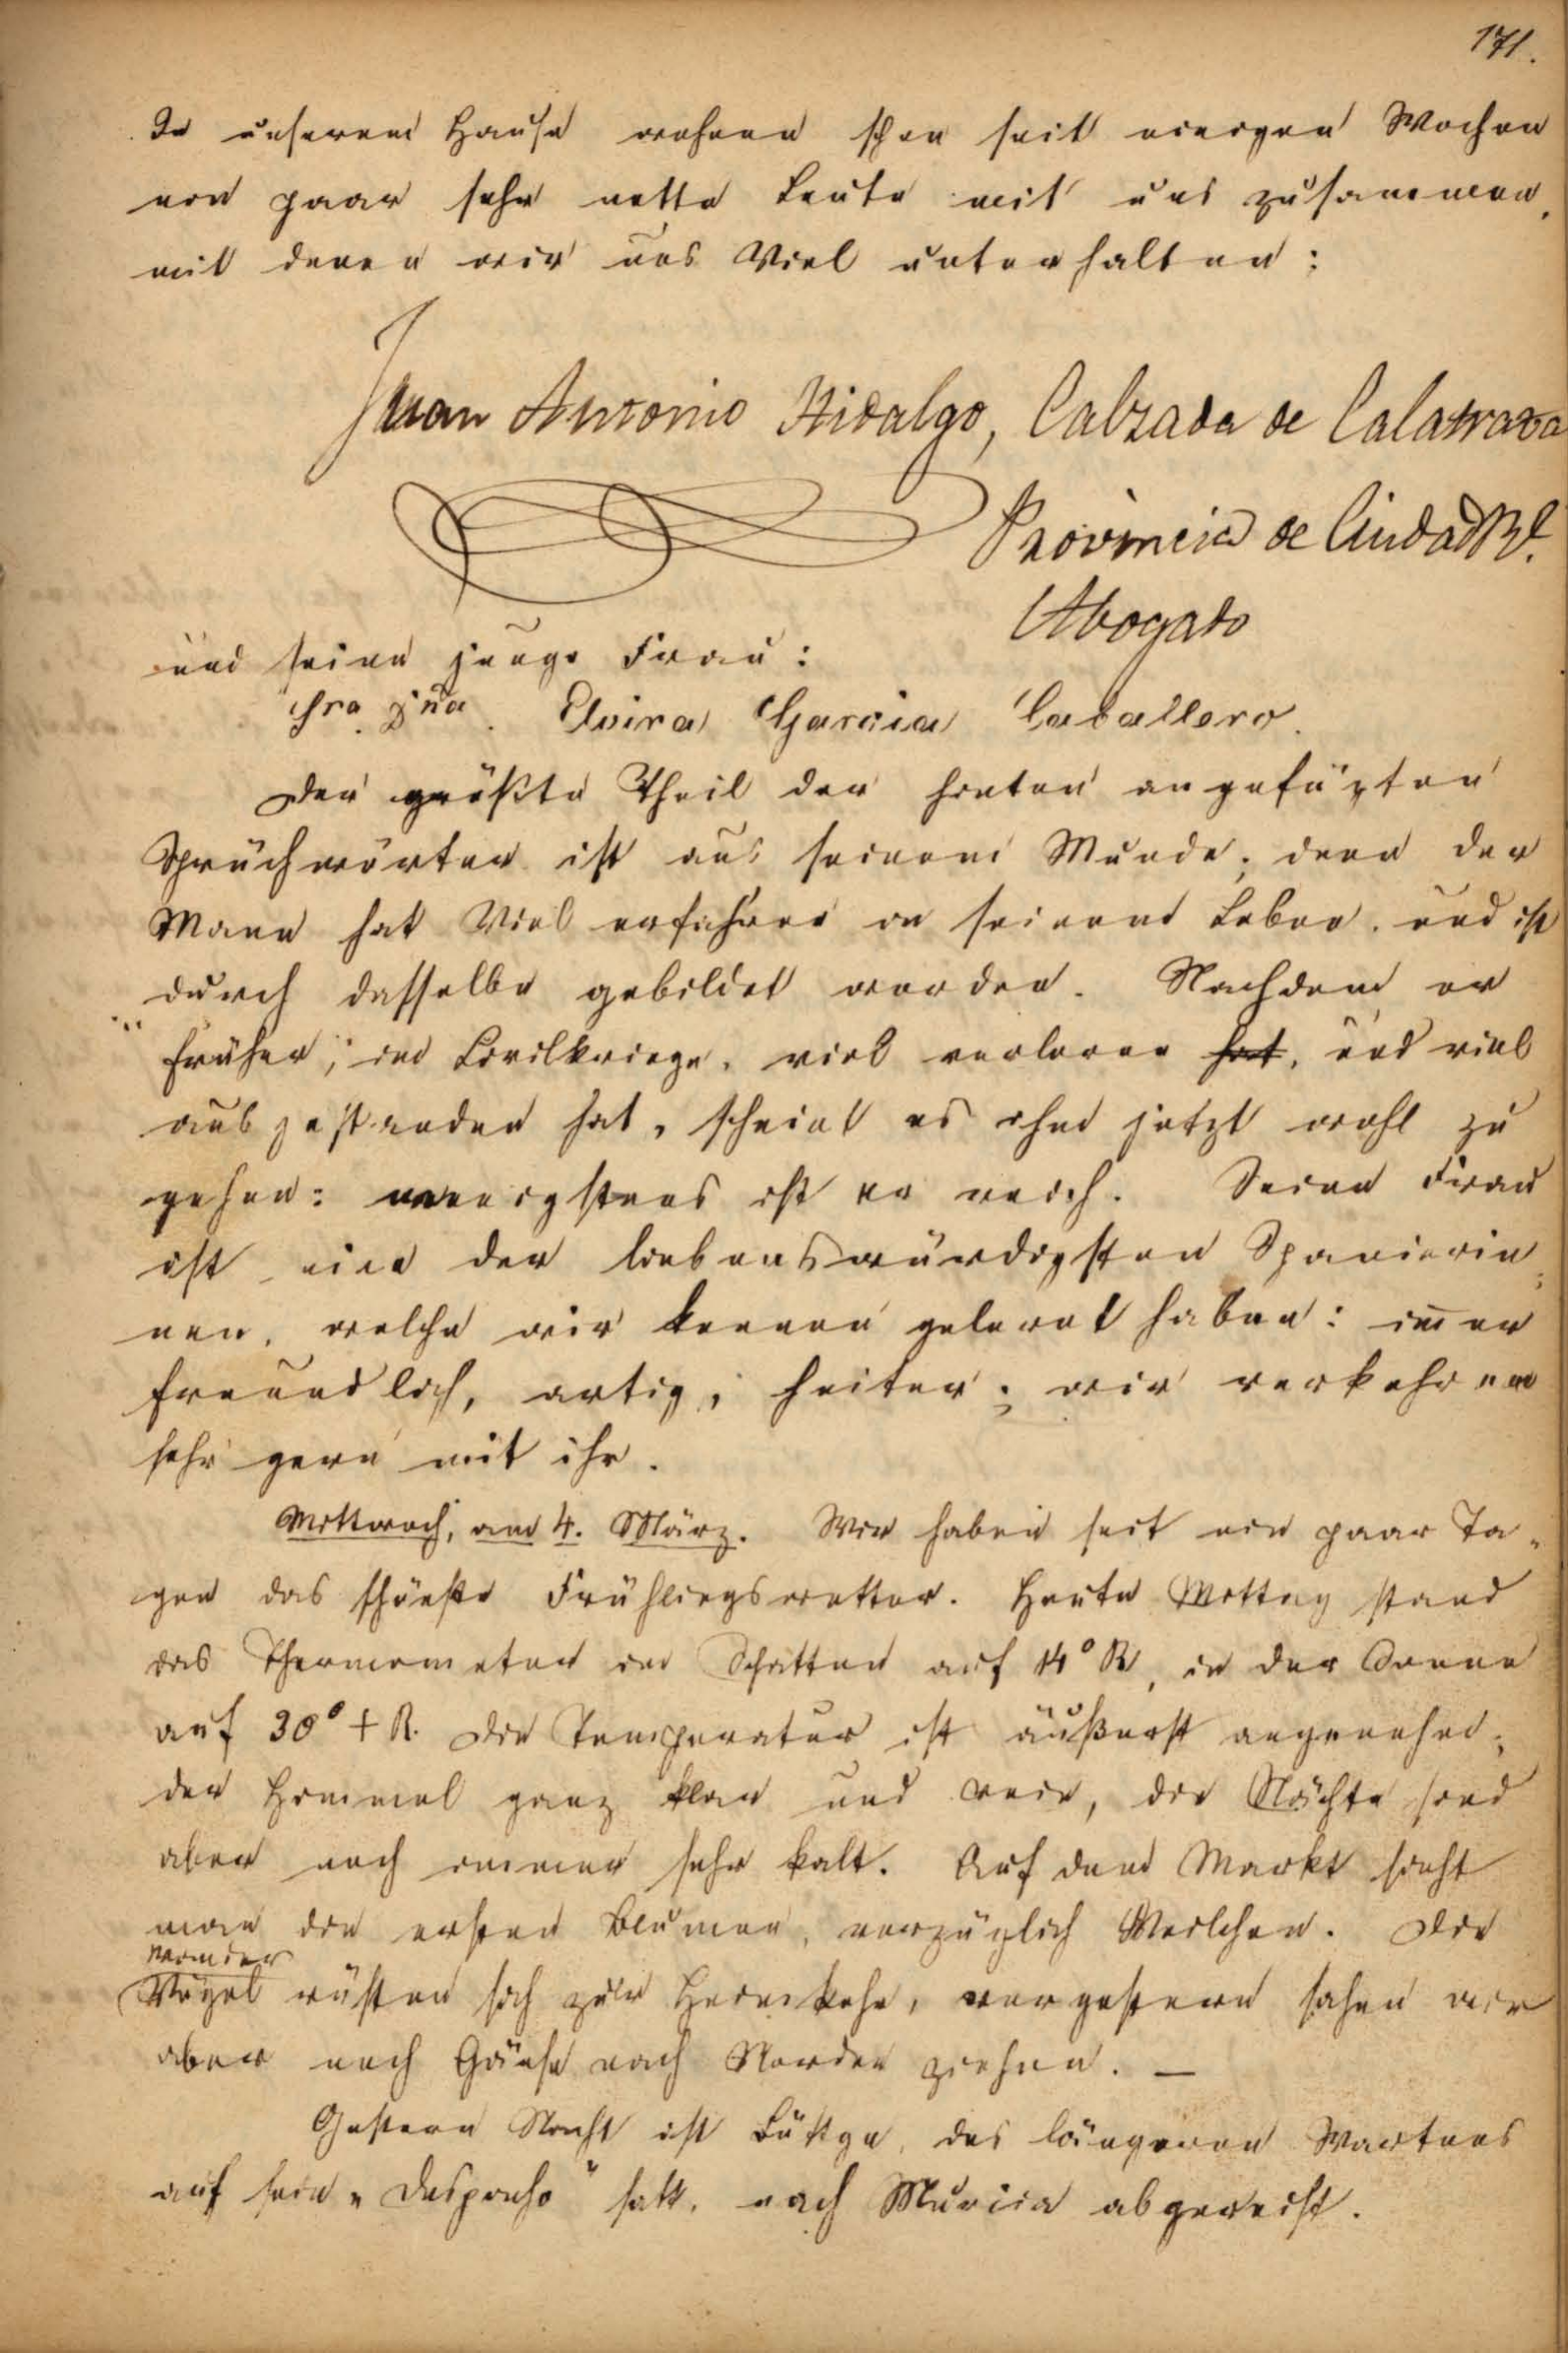 171.
In unserem Hause wohnen schon seit einigen Wochen
ein paar sehr nette Leute mit uns zusammen,
mit denen wir uns Viel unterhalten:
Juan Antonio Hidalgo, Calzada de Calatrava
Provincia de Ciudad Rl.
Abogado
und seine junge Frau:
Sra. Dña. Elvira Garcia Caballero.
Der größte Theil der hinten angefügten
Sprüchwörter ist aus seinem Munde; denn der
Mann hat Viel erfahren in seinem Leben, und ist
durch dasselbe gebildet worden. Nachdem er
früher, im Civilkriege, viel verloren hat, und viel
ausgestanden hat, scheint es ihm jetzt wohl zu
gehen: wenigstens ist er reich. Seine Frau
ist eine der liebenswürdigsten Spanierin-
nen, welche wir kennen gelernt haben: im̄er
freundlich, artig, heiter; wir verkehren
sehr gern mit ihr.
Mittwoch, am 4. März. Wir haben seit ein paar Ta-
gen das schönste Frühlingswetter. Heute Mittag stand
das Thermometer im Schatten auf 14° R, in der Sonne
auf 30° + R. Die Temperatur ist äußerst angenehm;
der Himmel ganz klar und rein, die Nächte sind
aber noch immer sehr kalt. Auf dem Markt sieht
man die ersten Blumen, vorzüglich Veilchen. Die
Vögel rüsten sich zur Heimkehr, vorgestern sahen wir
aber auch Gänse nach Norden ziehen. —
Gestern Nacht ist des längeren Wartens
auf sein „Despacho“ satt, nach Murcia abgereist.